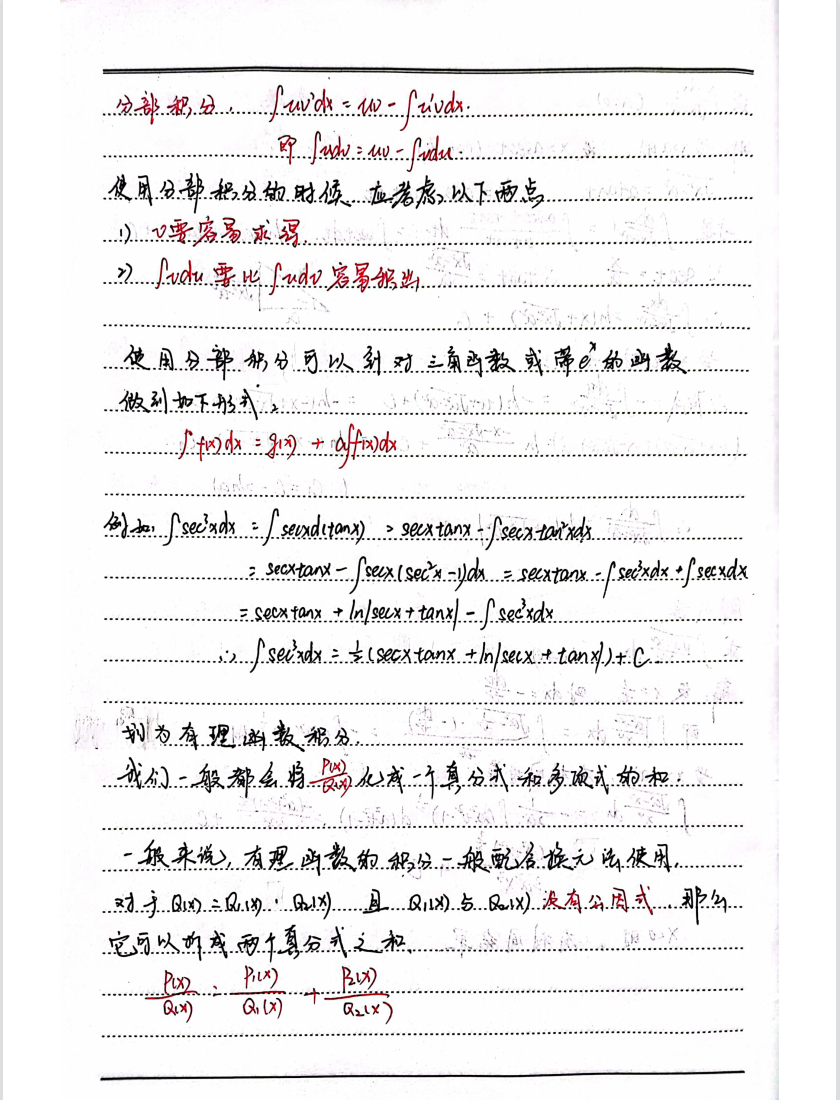 分部积分. ∫uv'dx = uv - ∫u'vdx.
即 ∫udv = uv - ∫vdu.
使用分部积分的时候, 应考虑以下两点
1) v要容易求得.
2) ∫vdu 要比 ∫udv 容易积出
使用分部积分可以到对三角函数或带e^x的函数
做到如下形式,
∫f(x)dx = g(x) + a∫f(x)dx
例如. ∫sec³xdx = ∫secxd(tanx) = secxtanx - ∫secx·tan²xdx
= secxtanx - ∫secx(sec²x-1)dx = secxtanx - ∫sec³xdx + ∫secxdx
= secxtanx + ln|secx + tanx| - ∫sec³xdx
∴ ∫sec³xdx = ½(secxtanx + ln|secx + tanx|) + C.
为有理函数积分.
我们一般都会将 P(x)/Q(x) 化成一个真分式和多项式的和.
一般来说, 有理函数的积分一般配合换元法使用.
对于 Q(x) = Q₁(x)·Q₂(x) 且 Q₁(x)与Q₂(x) 没有公因式, 那么
它可以拆成两个真分式之和.
P(x)/Q(x) = P₁(x)/Q₁(x) + P₂(x)/Q₂(x)